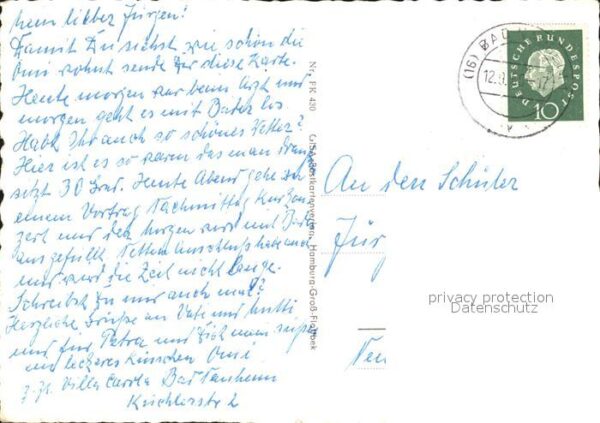 Mein lieber Jürgen!
Damit Du siehst wie schön die
Omi wohnt sende Dir diese Karte.
Heute morgen war beim Arzt und
morgen geht es mit Baden los
Habt Ihr auch so schönes Wetter?
Hier ist es so warm das man
sitzt 30 Grad. Heute Abend gehe zu
einem Vortrag Nachmittag Kurkon
zert und der morgen wird mit Baden
ausgefüllt Netten Anschluß habe auch
und wird die Zeit nicht lange.
Schreibst Du mir auch mal?
Herzliche Grüße an Vate und Mutti
und für Petra und Dich mein süßer
und leckeres Küsschen Omi
z. Zt. Villa Carola Bad Nauheim
Küchlerstr 2
Nr. FK 430
Hamburg-Groß-Flottbek
(16) BAD
12.
DEUTSCHE BUNDESPOST
10
An den Schüler
Jür
privacy protection
Datenschutz